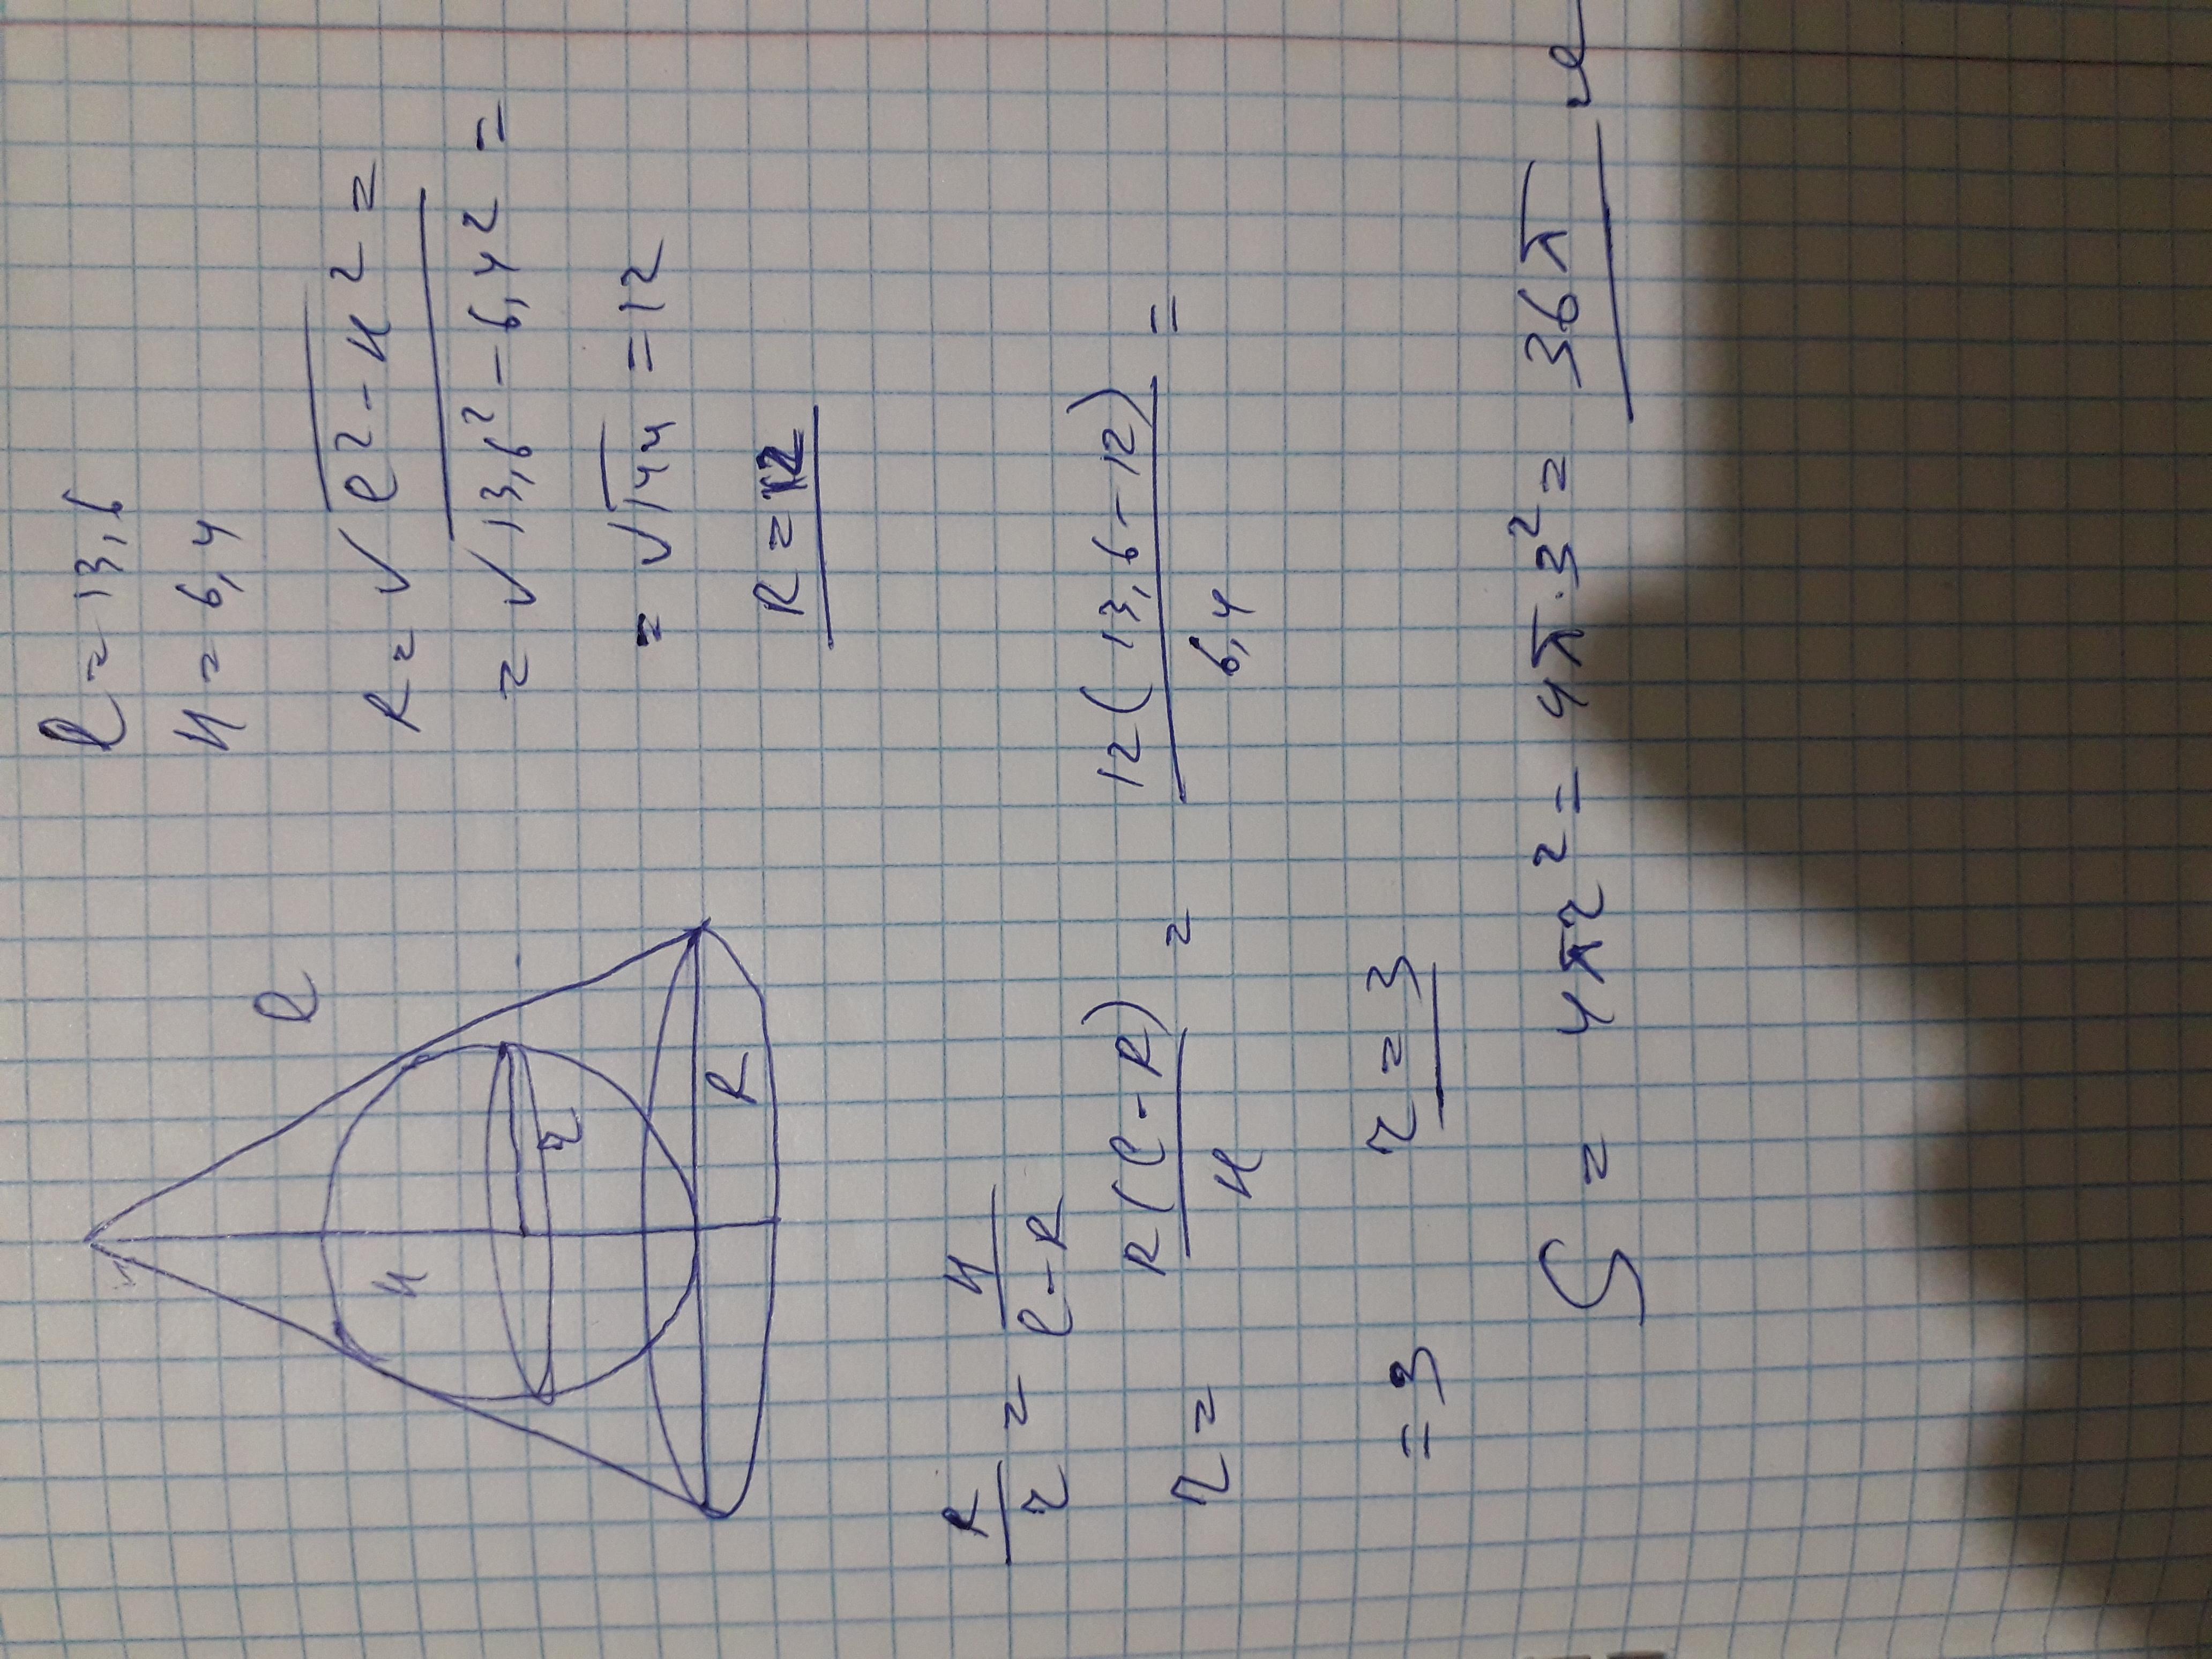 l = 13,6
H = 6,4
l
H
r
R
R = √(l² - H²) =
= √(13,6² - 6,4²) =
= √144 = 12
R = 12
R/r = H/(l - R)
r = R(l - R)/H = 12(13,6 - 12)/6,4 =
= 3 r = 3
S = 4πr² = 4π·3² = 36π